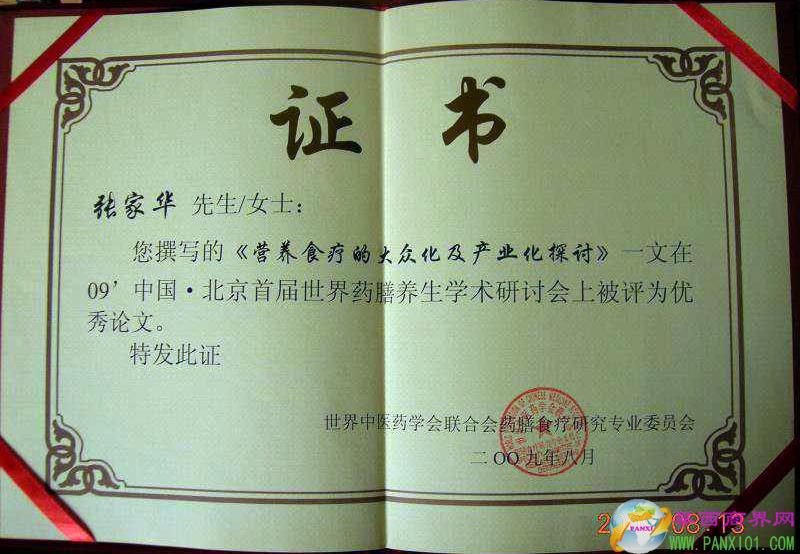 证 书
张家华 先生/女士：
您撰写的《营养食疗的大众化及产业化探讨》一文在
09’中国·北京首届世界药膳养生学术研讨会上被评为优
秀论文。
特发此证
世界中医药学会联合会药膳食疗研究专业委员会
二〇〇九年八月
08:13
PANXI
西商界网
WWW.PANXI01.COM